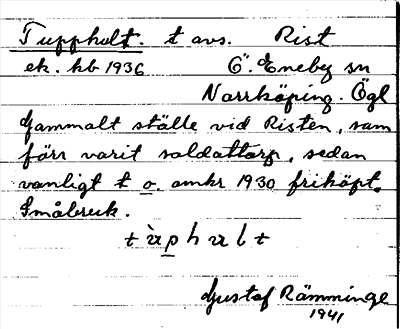 Tuppholt. t avs. Rist
ek. kb 1936 Ö. Eneby sn
Norrköping. Ögl
Gammalt ställe vid Risten, som
förr varit soldattorp, sedan
vanligt t o. omkr 1930 friköpt.
Småbruk.
Gustaf Rämminge
1941